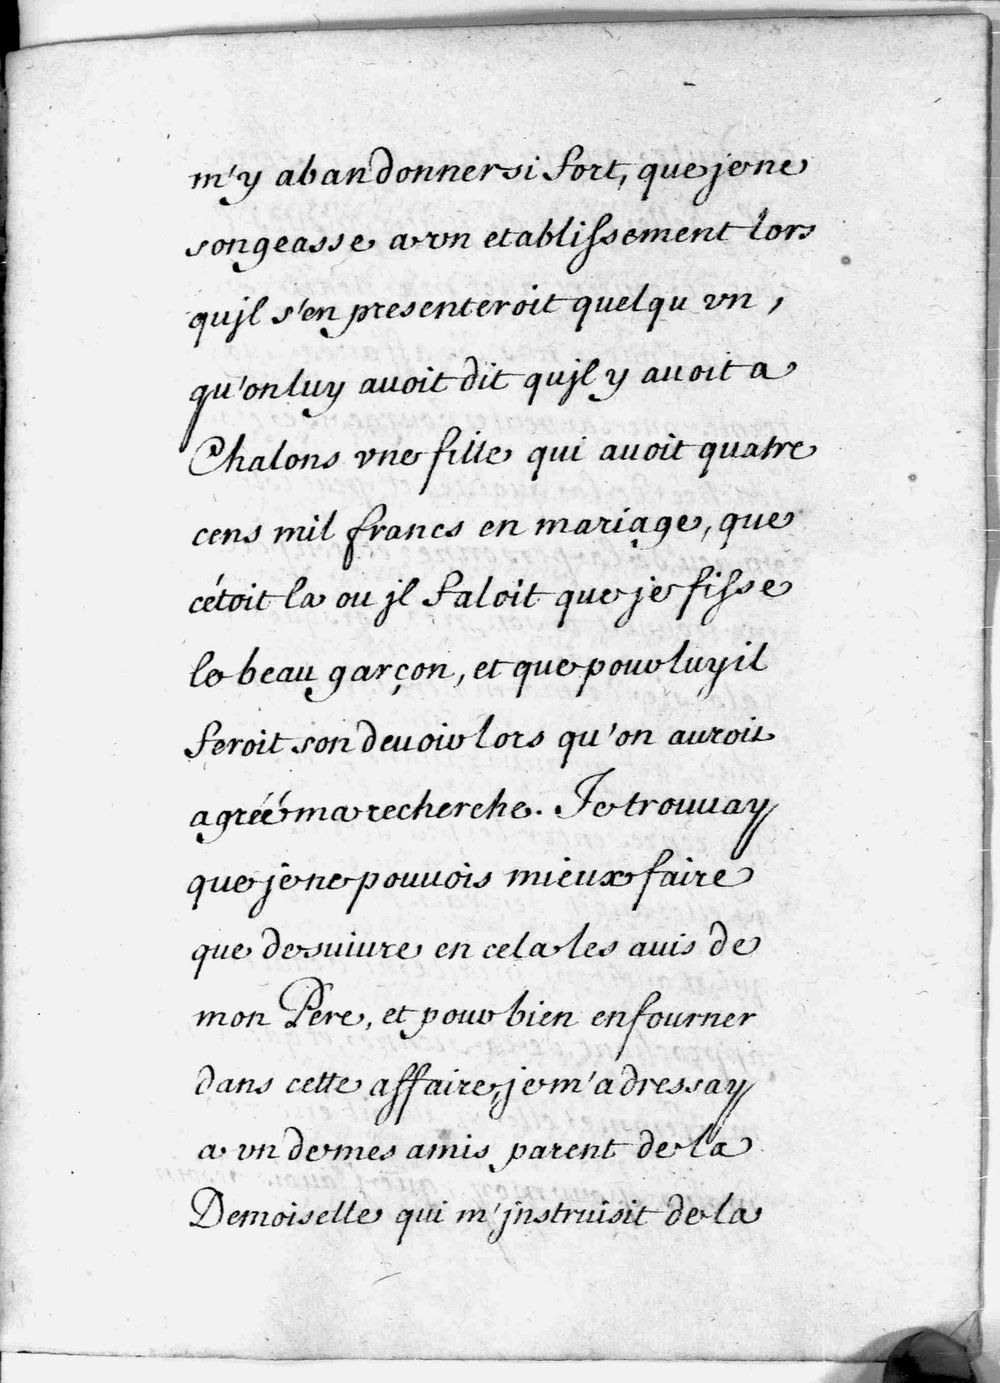 m'y abandonner si fort, que je ne
songeasse a vn etablissement lors
qujl s'en presenteroit quelqu vn,
qu'on luy auoit dit qujl y auoit a
Chalons vne fille qui auoit quatre
cens mil francs en mariage, que
c'étoit la ou jl faloit que je fisse
le beau garçon, et que pour luy il
feroit son deuoir lors qu'on auroit
agréé ma recherche. Je trouuay
que je ne pouuois mieux faire
que de suiure en cela les auis de
mon Pere, et pour bien enfourner
dans cette affaire, je m'adressay
a vn de mes amis parent de la
Demoiselle qui m'jnstruisit de la